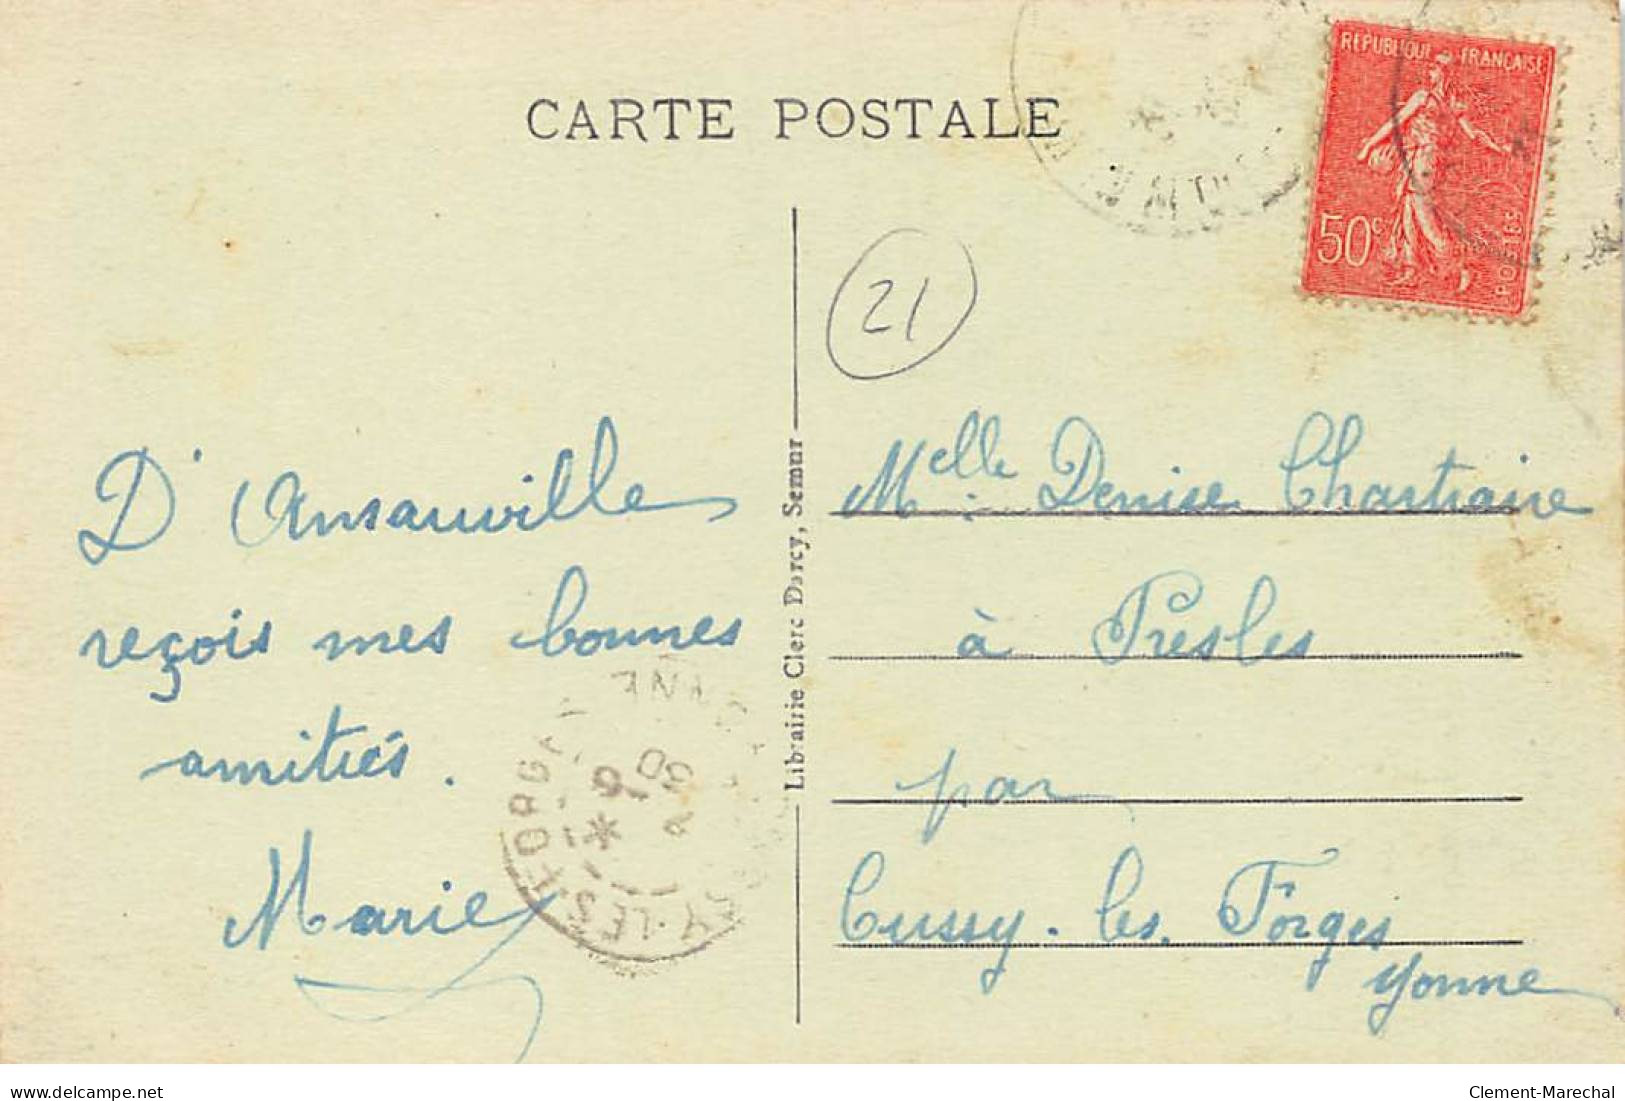 CARTE POSTALE
RÉPUBLIQUE FRANÇAISE
50c
POSTES
21
D'Ansauville
reçois mes bonnes
amitiés.
Marie
Librairie Clerc Darcy, Semur
Melle Denise Chartraire
à Presles
par
Cussy-les-Forges
Yonne
Y-LES-FORGES
YONNE
delcampe.net
Clement-Marechal